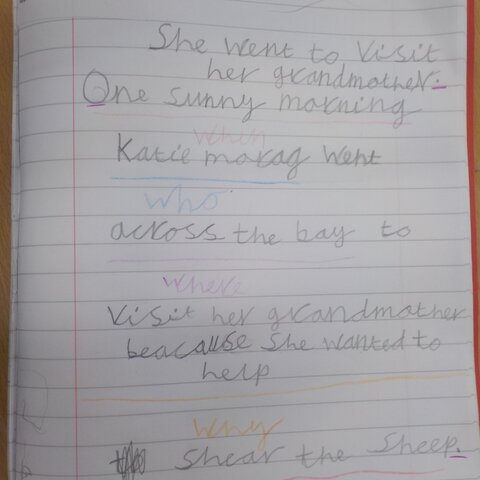 She went to visit
her grandmother.
One sunny morning
when
Katie morag went
who
across the bay to
where
visit her grandmother
beacause she wanted to
help
why
shear the sheep.